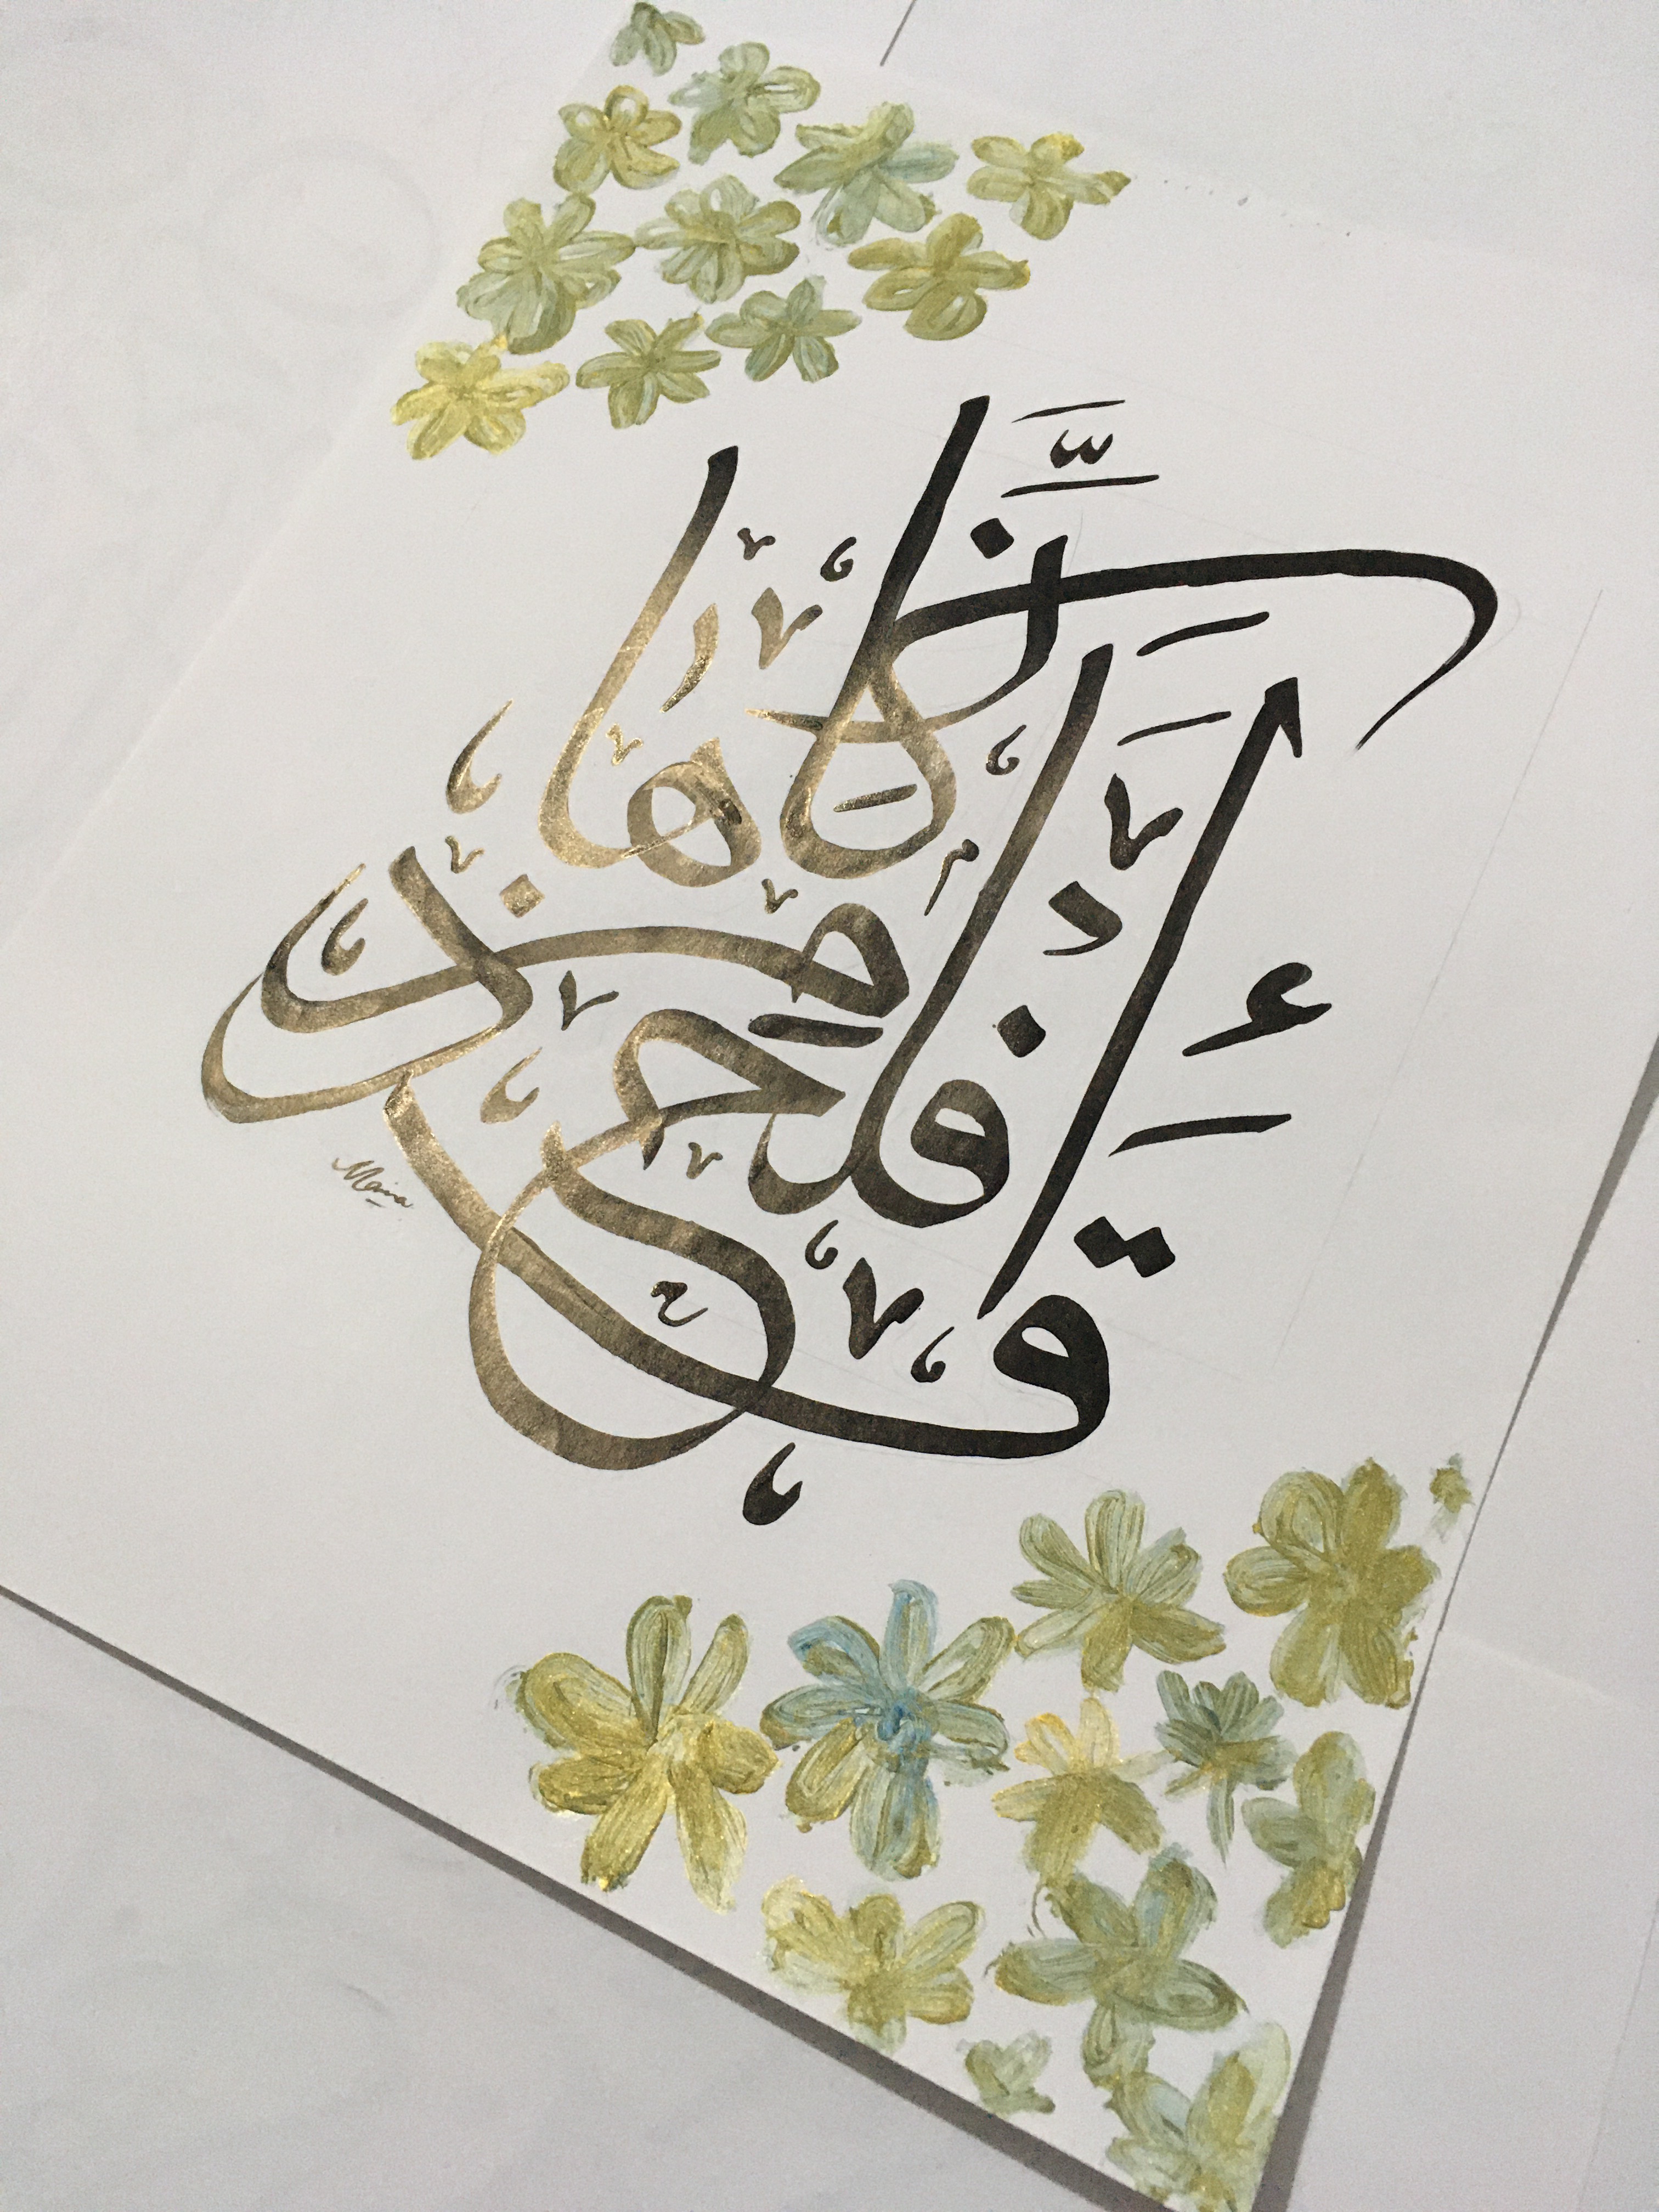 قَدْ أَفْلَحَ مَنْ زَكَّاهَا
Maira